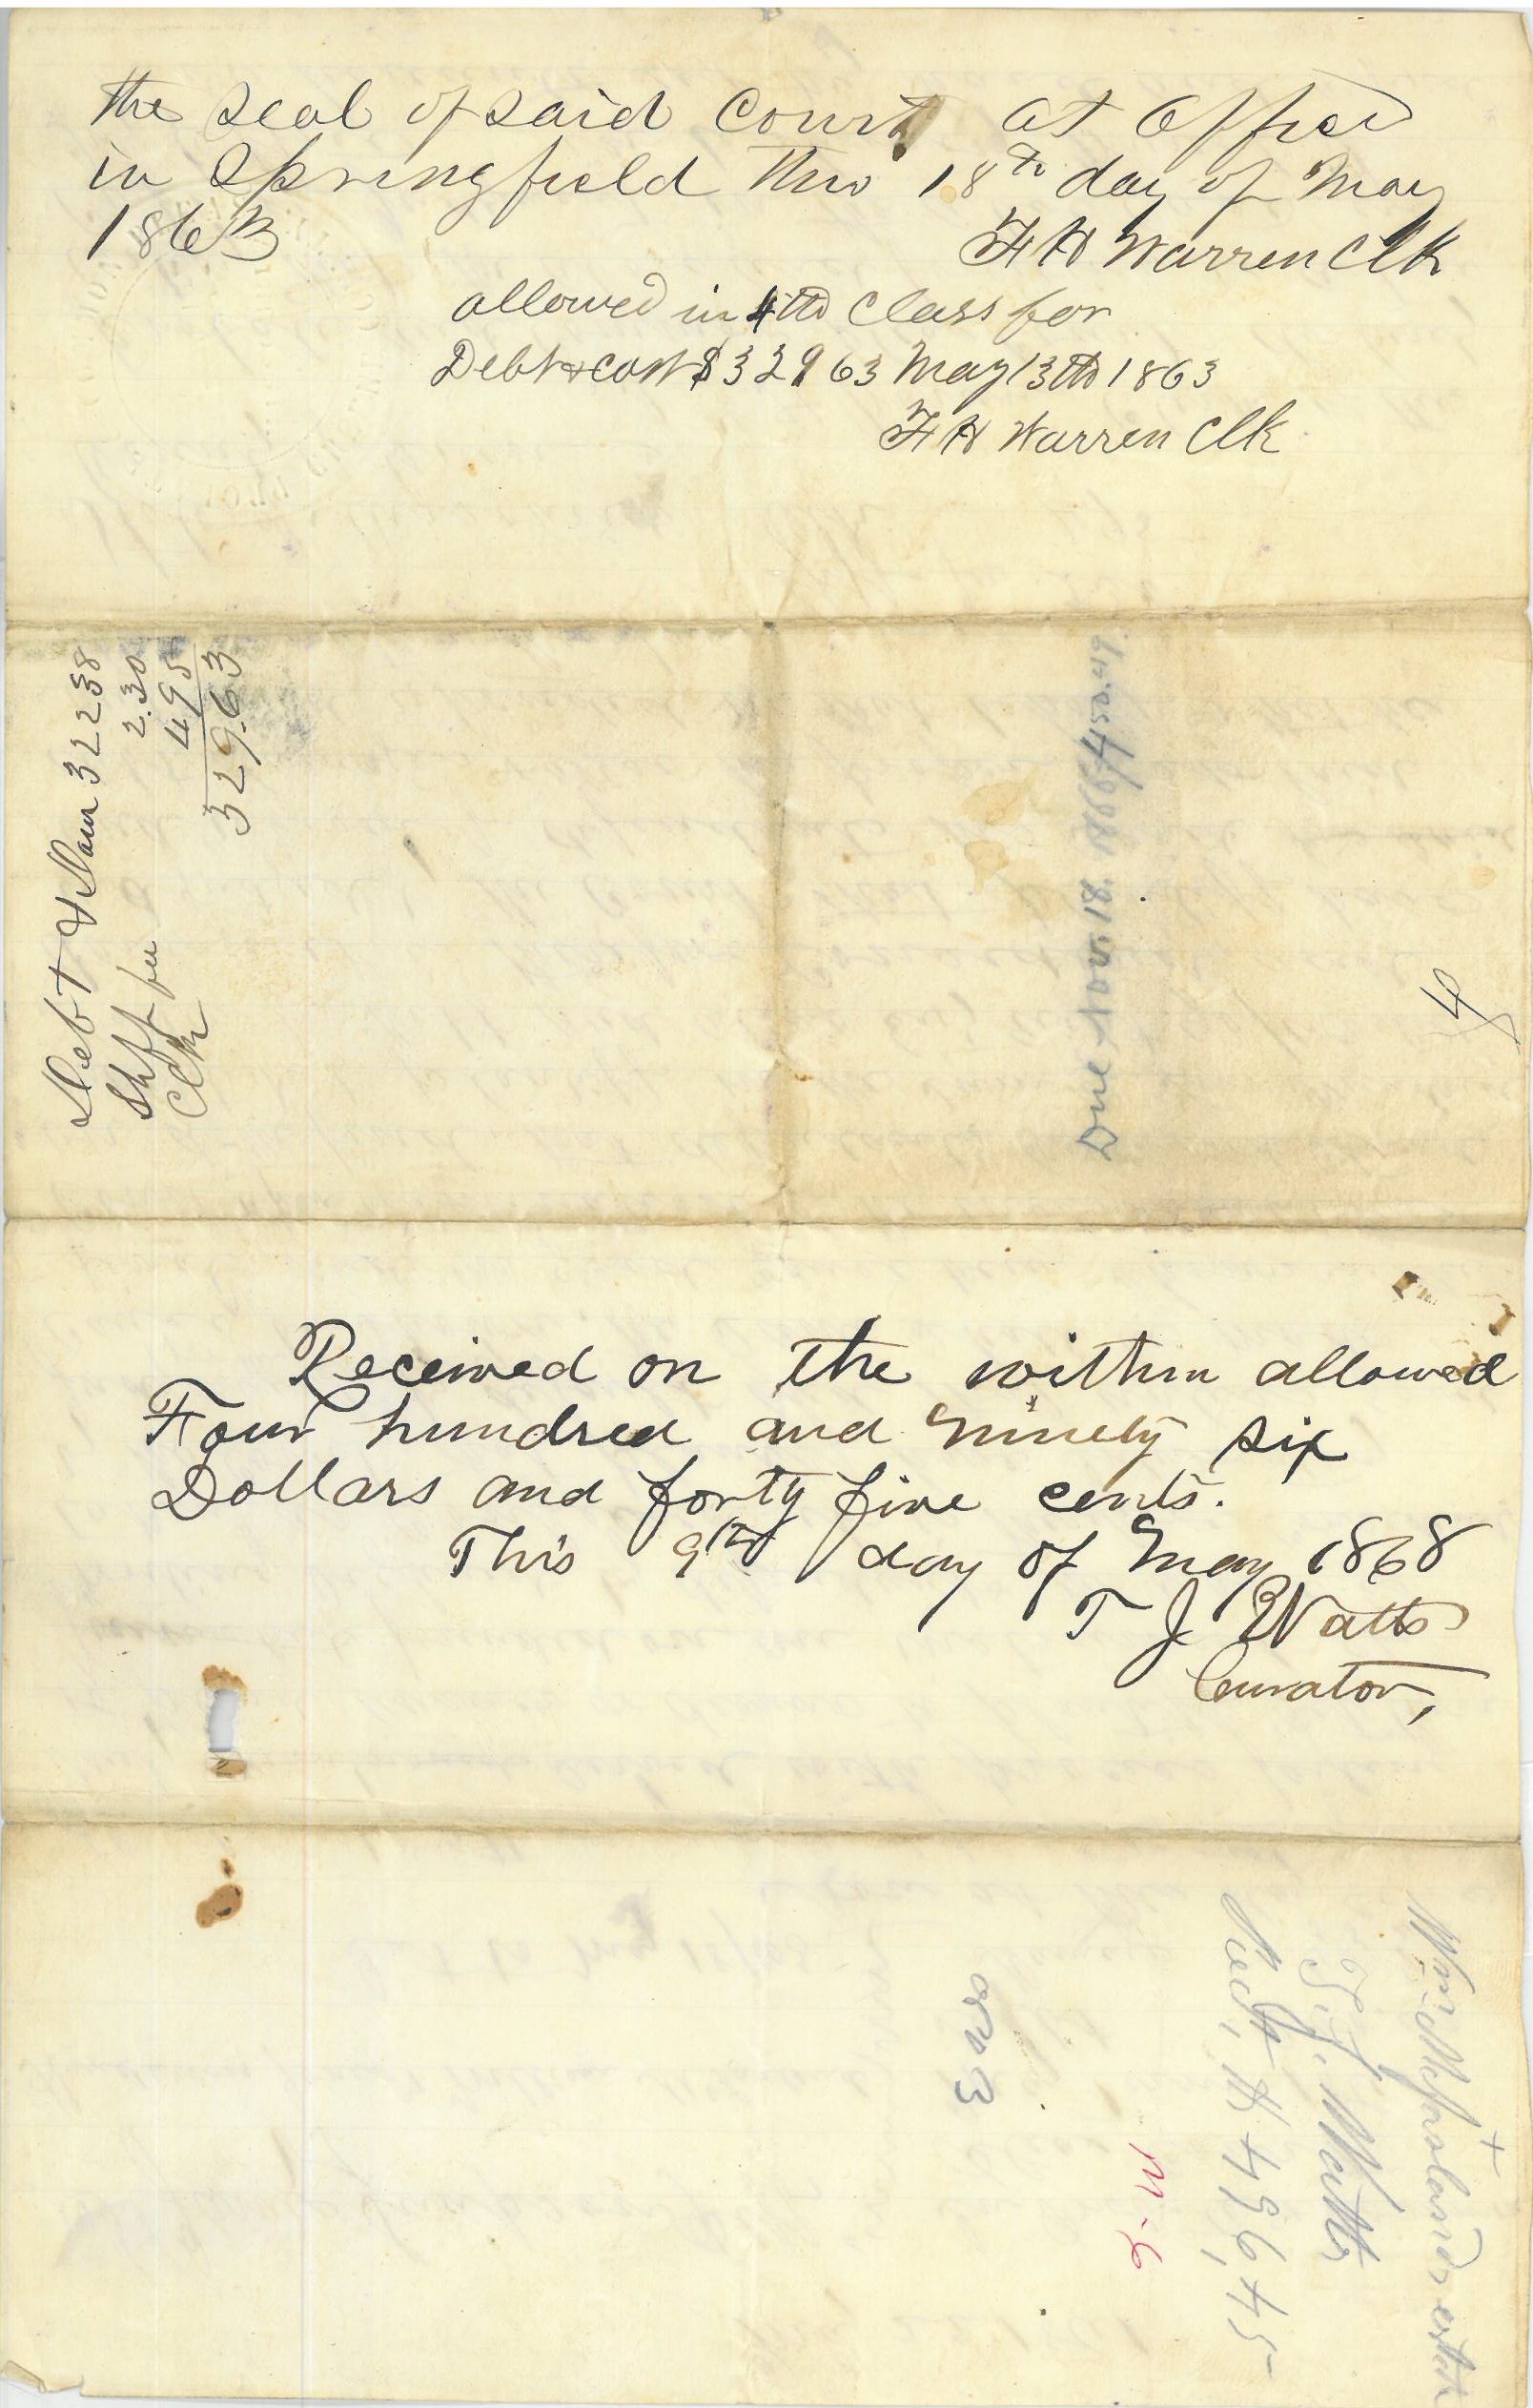 the seal of said Court at office
in Springfield this 18th day of May
1863
F H Warren Clk
allowed in 4th Class for
Debt & cost $329 63 May 13th 1863
F H Warren Clk
Debt & Dam 322 38
Shff fee 2.30
Clk 4 95
329.63
Due Nov. 18. 1866
4
Received on the within allowed
Four hundred and ninety six
Dollars and forty five cents.
This 9th day of May 1868
T J Watts
Curator,
Wm McFarland's estate
T. J. Watts
Rect, $ 496,45